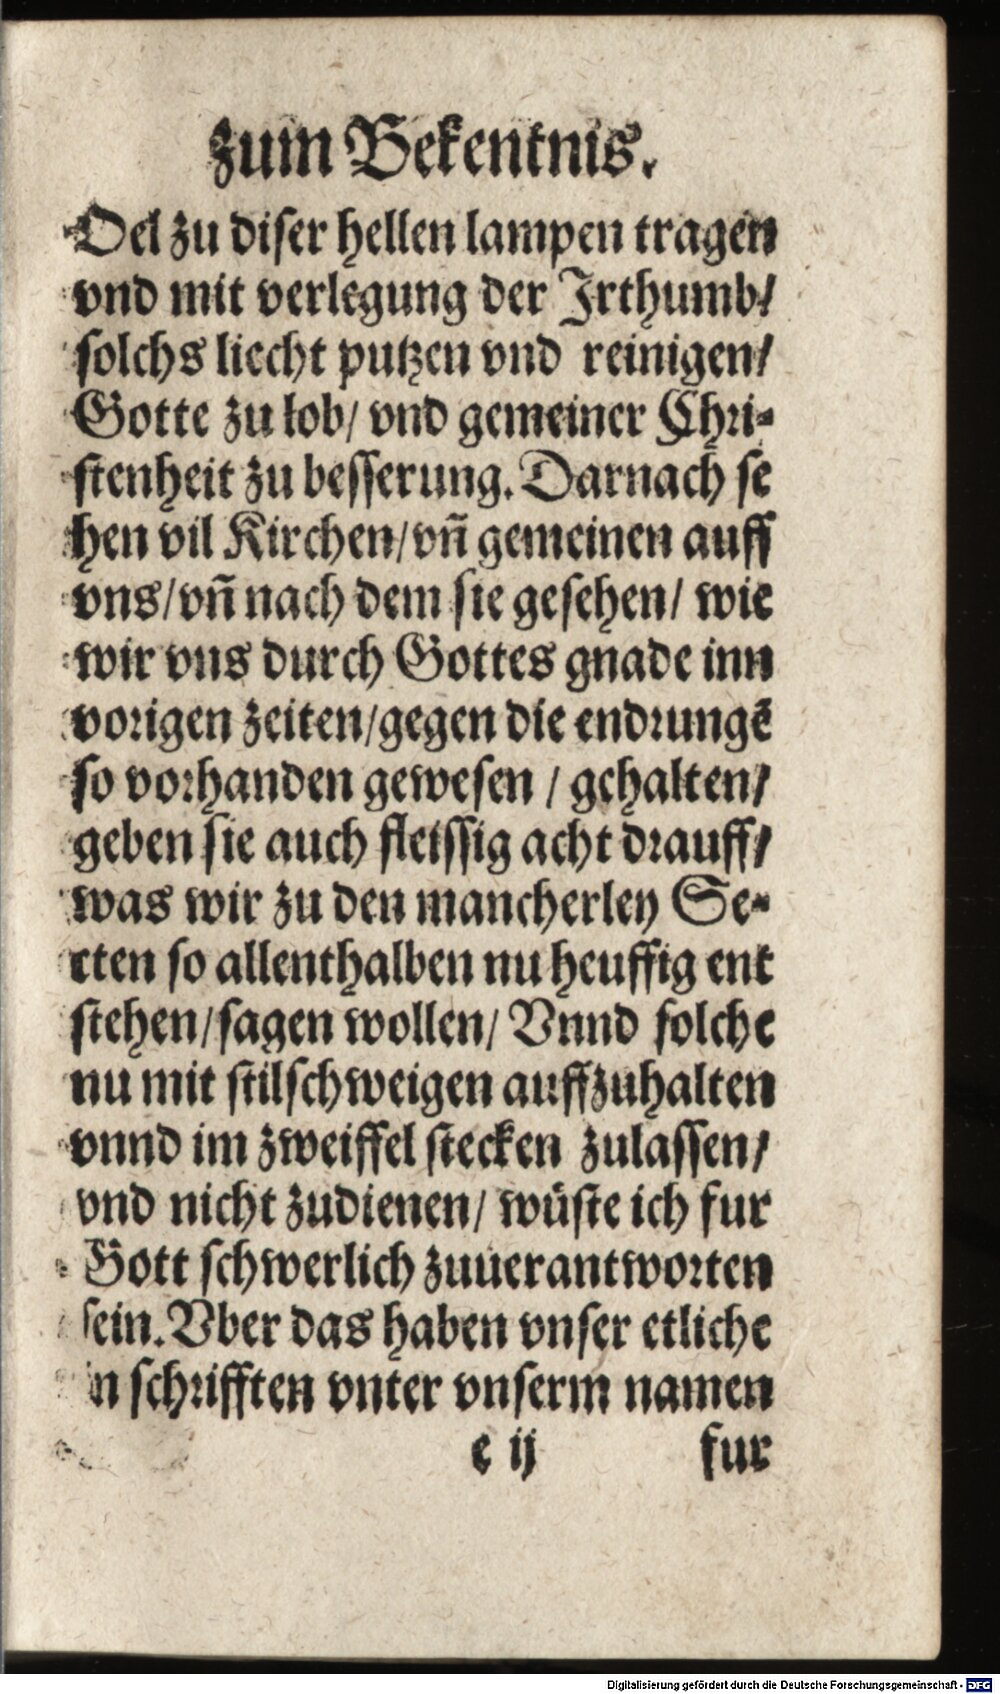 zum Bekentnis.
Oel zu diser hellen lampen tragen
vnd mit verlegung der Jrthumb/
solchs liecht putzen vnd reinigen/
Gotte zu lob/ vnd gemeiner Chri-
stenheit zu besserung. Darnach se
hen vil Kirchen/vñ gemeinen auff
vns/vñ nach dem sie gesehen/ wie
wir vns durch Gottes gnade inn
vorigen zeiten/gegen die endrungē
so vorhanden gewesen / gehalten/
geben sie auch fleissig acht drauff/
was wir zu den mancherley Se-
cten so allenthalben nu heuffig ent
stehen/sagen wollen/ Vnnd solche
nu mit stilschweigen auffzuhalten
vnnd im zweiffel stecken zulassen/
vnd nicht zudienen/ wüste ich fur
Gott schwerlich zuuerantworten
sein. Vber das haben vnser etliche
in schrifften vnter vnserm namen
e ij fur
Digitalisierung gefördert durch die Deutsche Forschungsgemeinschaft - DFG